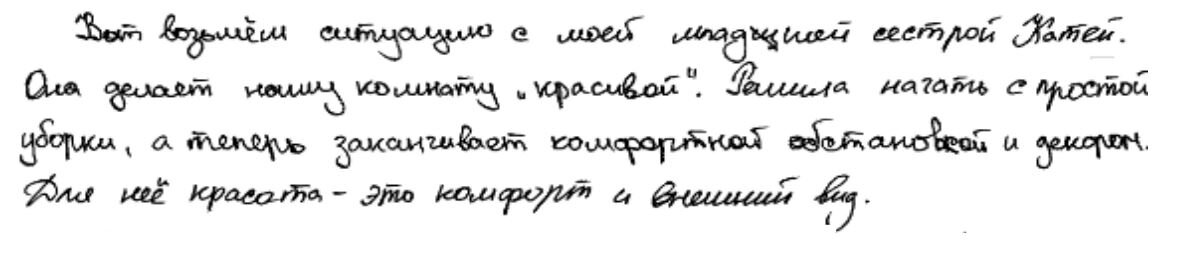 Вот возьмём ситуацию с моей младшией сестрой Катей.
Она делает нашу комнату „красивой“. Решила начать с простой
уборки, а теперь заканчивает комфортной обстановкой и декором.
Для неё красата – это комфорт и внешний вид.